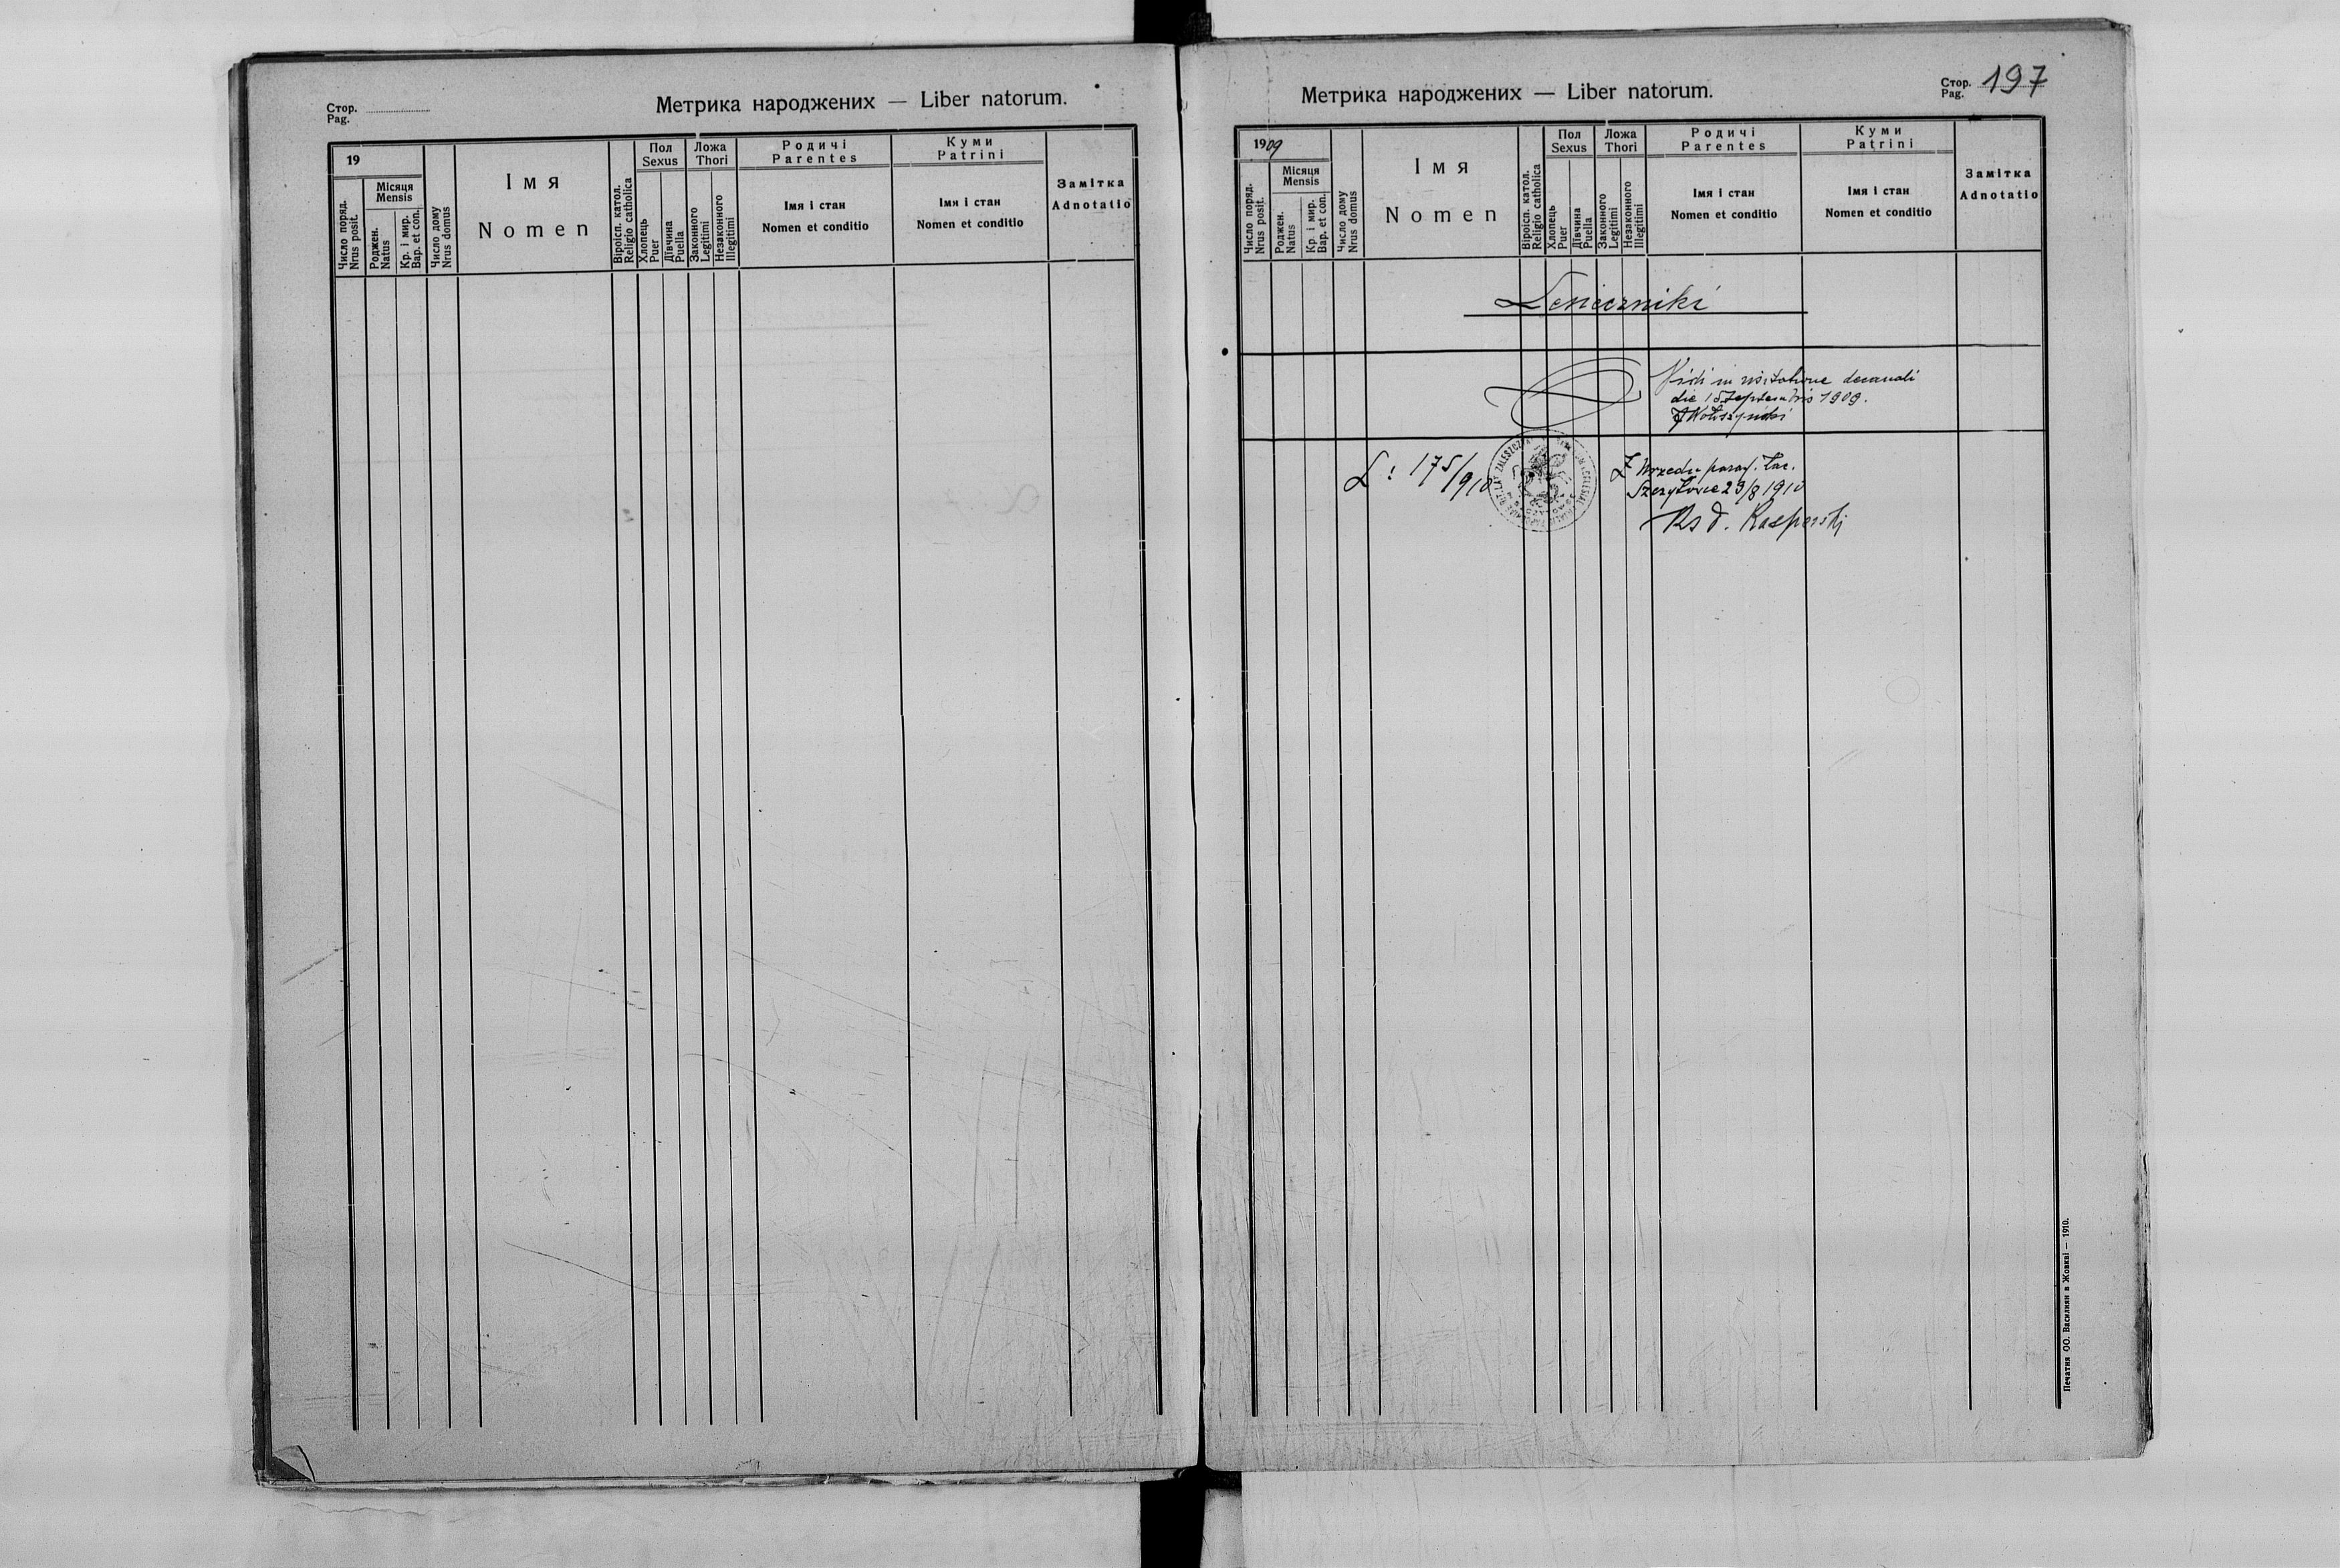 Стор.
Pag.
Метрика народжених — Liber natorum.
19
Число поряд.
Nrus posit.
Місяця
Mensis
Роджен.
Natus
Кр. і мир.
Bap. et con.
Число дому
Nrus domus
Імя
Nomen
Віроісп. катол.
Religio catholica
Пол
Sexus
Хлопець
Puer
Дівчина
Puella
Ложа
Thori
Законного
Legitimi
Незаконного
Illegitimi
Родичі
Parentes
Імя і стан
Nomen et conditio
Куми
Patrini
Імя і стан
Nomen et conditio
Замітка
Adnotatio
Метрика народжених — Liber natorum.
Стор.
Pag. 197
1909
Число поряд.
Nrus posit.
Місяця
Mensis
Роджен.
Natus
Кр. і мир.
Bap. et con.
Число дому
Nrus domus
Імя
Nomen
Віроісп. катол.
Religio catholica
Пол
Sexus
Хлопець
Puer
Дівчина
Puella
Ложа
Thori
Законного
Legitimi
Незаконного
Illegitimi
Родичі
Parentes
Імя і стан
Nomen et conditio
Куми
Patrini
Імя і стан
Nomen et conditio
Замітка
Adnotatio
Vidi in visitatione decanali
die 15 Septembris 1909.
L: 175/910
Z Urzędu paraf. łac.
23/8 1910
Ks J. Kasperski
Печатня ОО. Василиян в Жовкві — 1910.